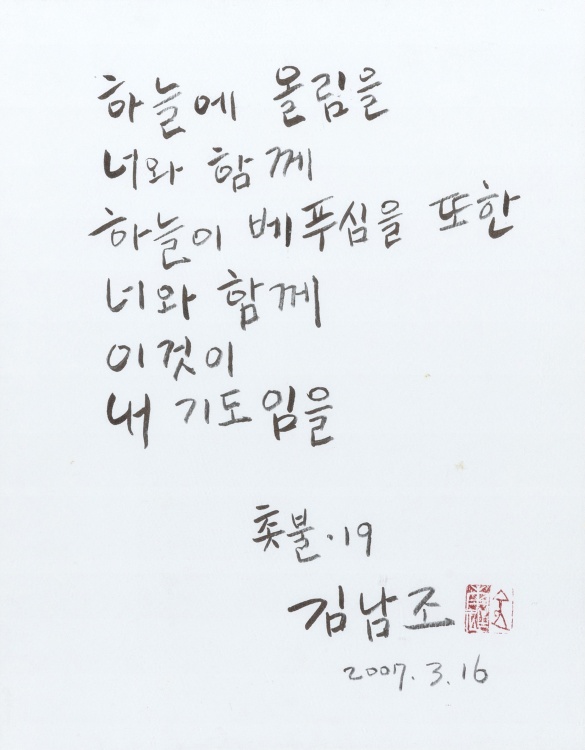 하늘에 올림을
너와 함께
하늘이 베푸심을 또한
너와 함께
이것이
내 기도임을
촛불·19
김남조
2007. 3. 16